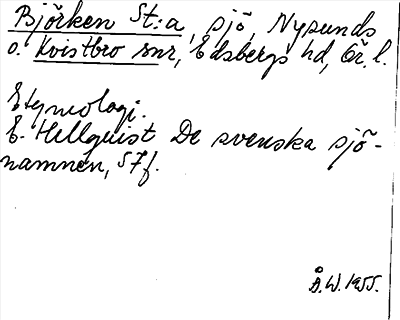 Björken St:a, sjö, Nysunds
o. Kvistbro snr, Edsbergs hd, Ör. l.
Etymologi.
E. Hellquist De svenska sjö-
namnen, 57f.
Å.W. 1955.